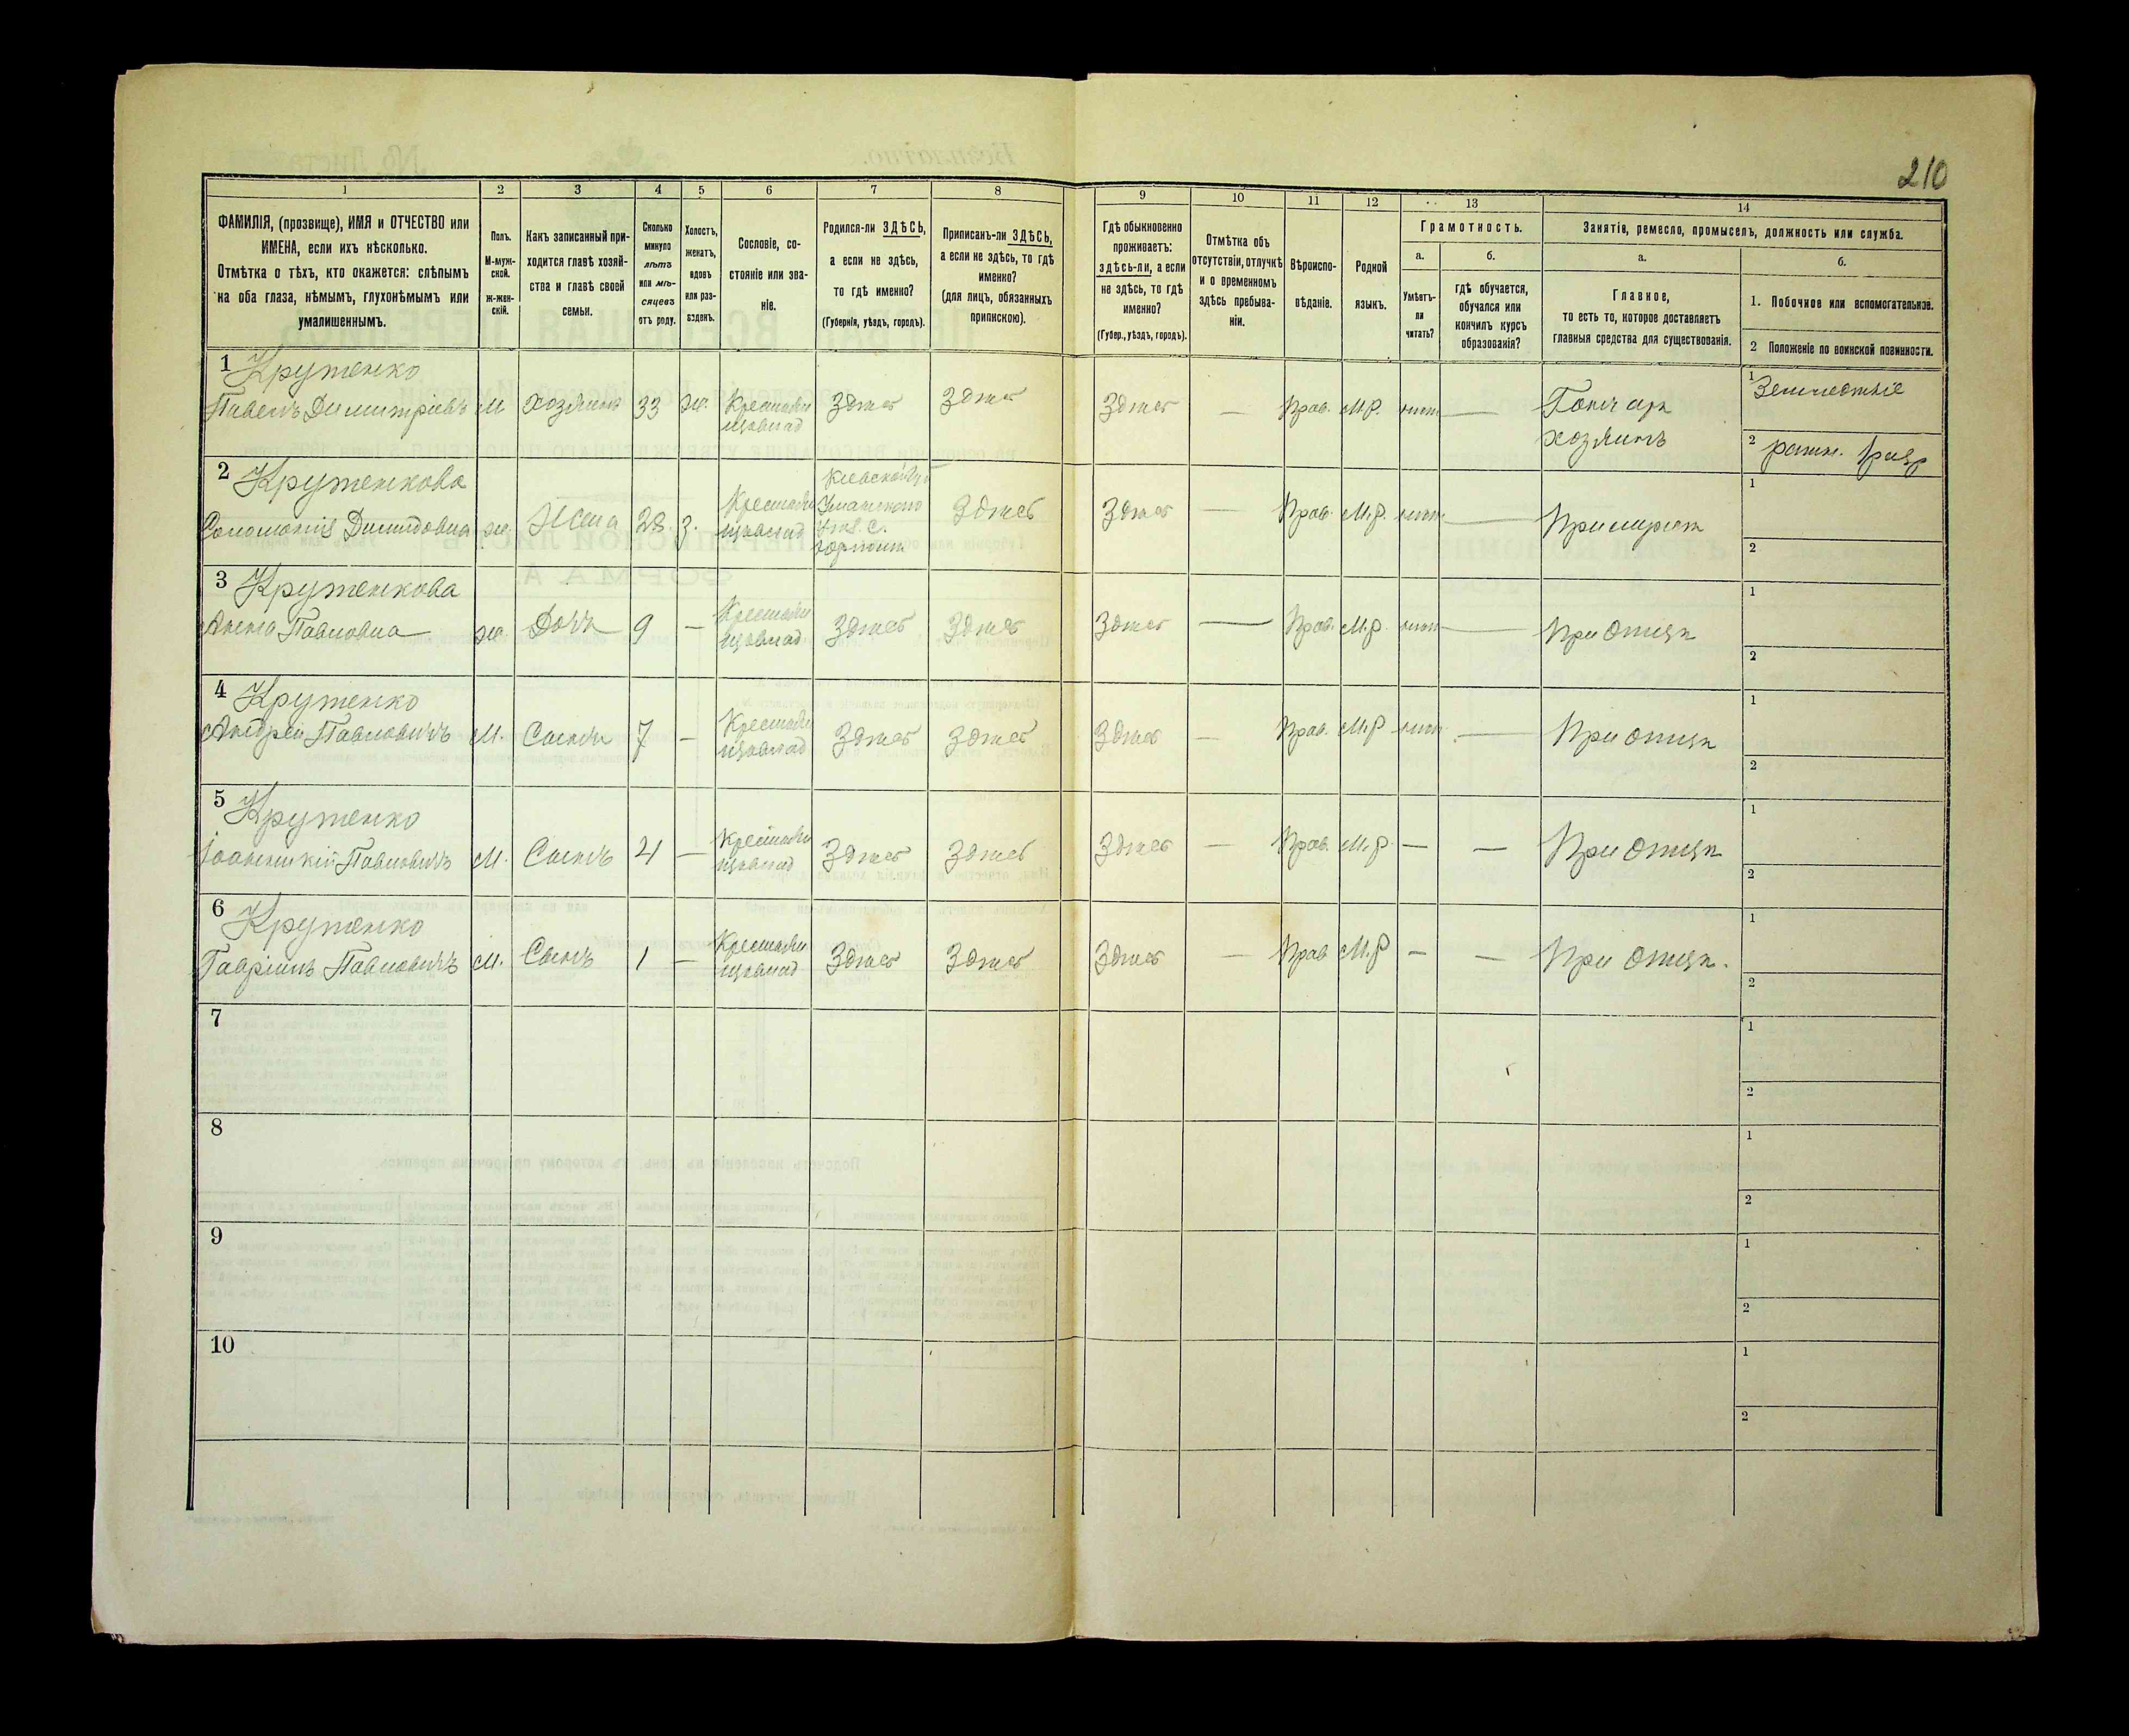 210
1
2
3
4
5
6
7
8
9
10
11
12
13
14
ФАМИЛІЯ, (прозвище), ИМЯ и ОТЧЕСТВО или
ИМЕНА, если ихъ нѣсколько.
Отмѣтка о тѣхъ, кто окажется: слѣпымъ
на оба глаза, нѣмымъ, глухонѣмымъ или
умалишеннымъ.
Полъ.
М-муж-
ской.
ж-жен-
скій.
Какъ записанный при-
ходится главѣ хозяй-
ства и главѣ своей
семьи.
Сколько
минуло
лѣтъ
или мѣ-
сяцевъ
отъ роду.
Холостъ,
женатъ,
вдовъ
или раз-
веденъ.
Сословіе, со-
стояніе или зва-
ніе.
Родился-ли ЗДѢСЬ,
а если не здѣсь,
то гдѣ именно?
(Губернія, уѣздъ, городъ).
Приписанъ-ли ЗДѢСЬ,
а если не здѣсь, то гдѣ
именно?
(для лицъ, обязанныхъ
припискою).
Гдѣ обыкновенно
проживаетъ:
здѣсь-ли, а если
не здѣсь, то гдѣ
именно?
(Губер., уѣздъ, городъ).
Отмѣтка объ
отсутствіи, отлучкѣ
и о временномъ
здѣсь пребыва-
ніи.
Вѣроиспо-
вѣданіе.
Родной
языкъ.
Грамотность.
а.
Умѣетъ-
ли
читать?
б.
гдѣ обучается,
обучался или
кончилъ курсъ
образованія?
Занятіе, ремесло, промыселъ, должность или служба.
а.
Главное,
то есть то, которое доставляетъ
главныя средства для существованія.
б.
1. Побочное или вспомогательное.
2 Положеніе по воинской повинности.
1 Крутенко
Павелъ Димитріевъ М хозяинъ 33 ж. Здѣсь Здѣсь Здѣсь — Прав. М.р. нѣт — Гончар
хозяинъ
1 Земледѣліе
2 ратн. 1 разр
2 Крутенкова
Соломонія Жена 28 з. Здѣсь Здѣсь — Прав. М.р. нѣт — При мужѣ
1
2
3 Крутенкова
Анна Павловна ж Дочь 9 — Здѣсь Здѣсь Здѣсь — Прав. М.р. нѣт — При отцѣ
1
2
4 Крутенко
Андрей Павловичъ М. Сынъ 7 — Здѣсь Здѣсь Здѣсь — Прав. М.р нѣт — При отцѣ
1
2
5 Крутенко
Іоанникій Павловичъ М. Сынъ 4 — Здѣсь Здѣсь Здѣсь — Прав. М.р. — — При отцѣ
1
2
6 Крутенко
Гавріилъ Павловичъ М. Сынъ 1 — Здѣсь Здѣсь Здѣсь — Прав М.р — — При отцѣ.
1
2
7
1
2
8
1
2
9
1
2
10
1
2